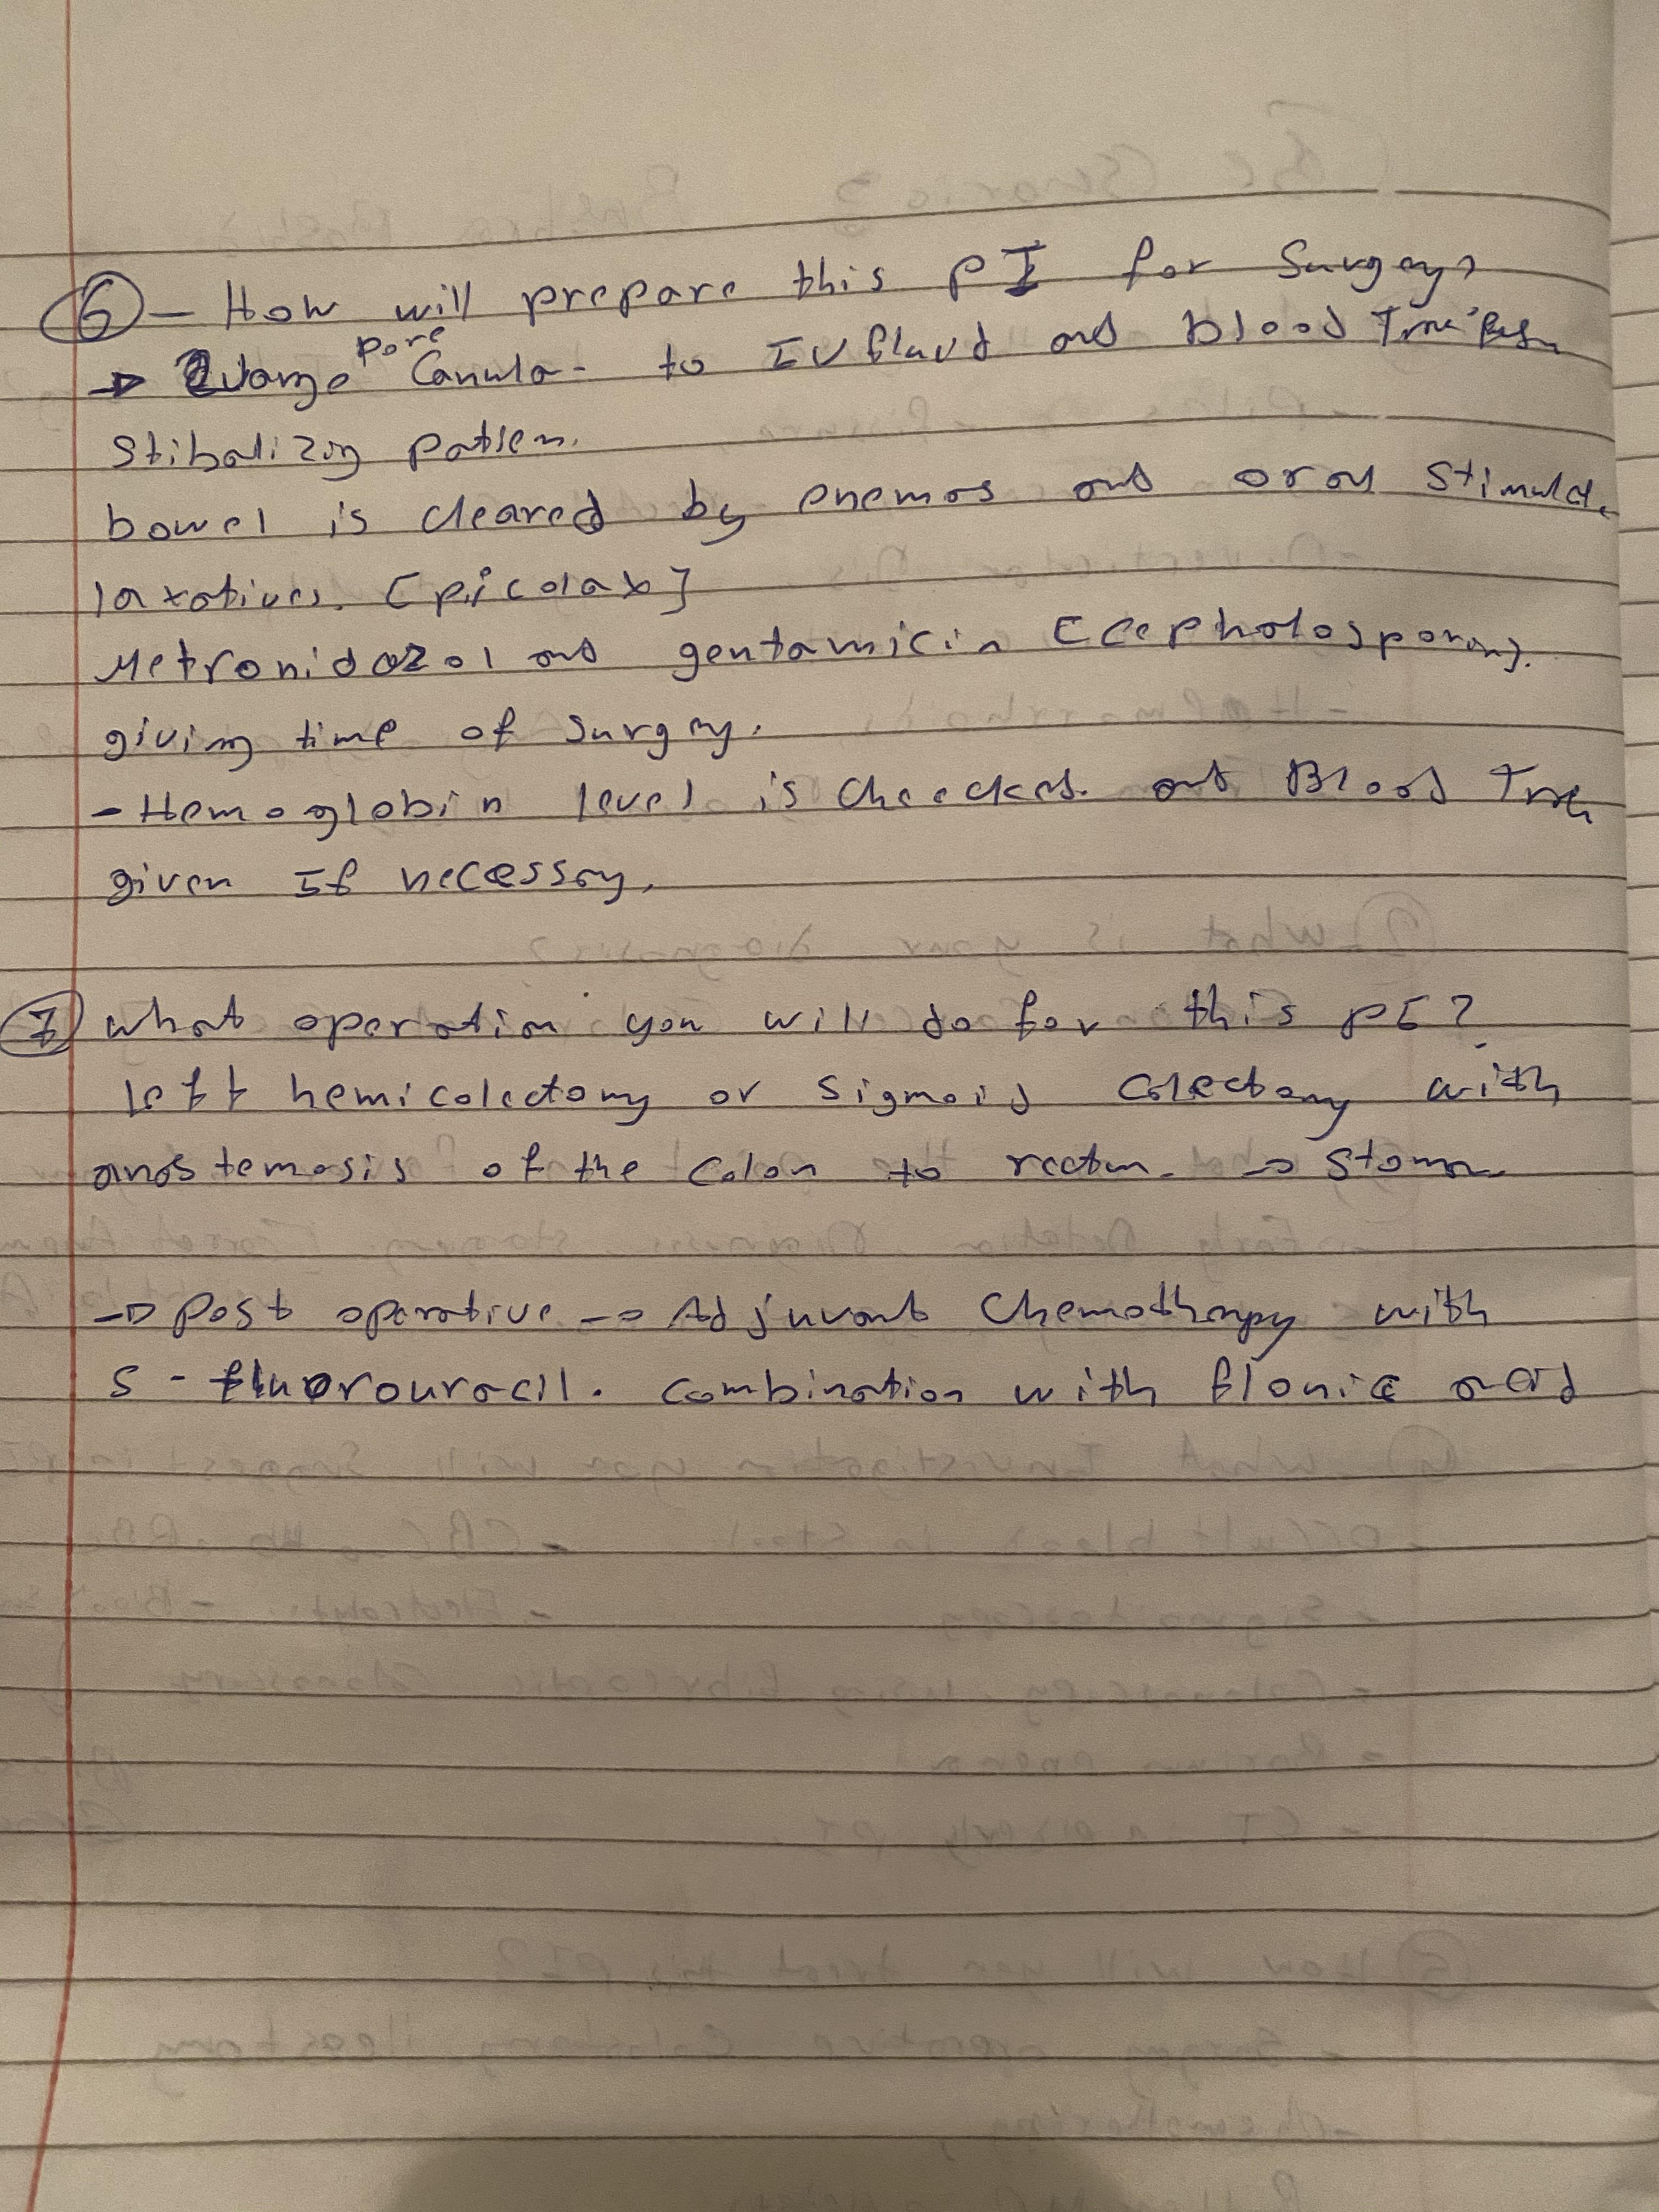 6 - How will prepare this PT for Surgery?
→ 2 large pore Canula - to IV fluud and blood
Stibalizing patien.
bowel is cleared by enemas and oral Stimulat.
laxatives. [picolax]
Metronidazol and gentamicin [cepholosporons].
giving time of surgery.
- Hemoglobin level is Cheecked. and Blood
given If necessary.
7 what operation you will do for this PT?
left hemicolectomy or Sigmoid Colectomy with
anastemosis of the Colon to rectum. → Stoma
→ Post operative → Adjuvant Chemotherapy with
5 - fluorouracil. Combination with acid